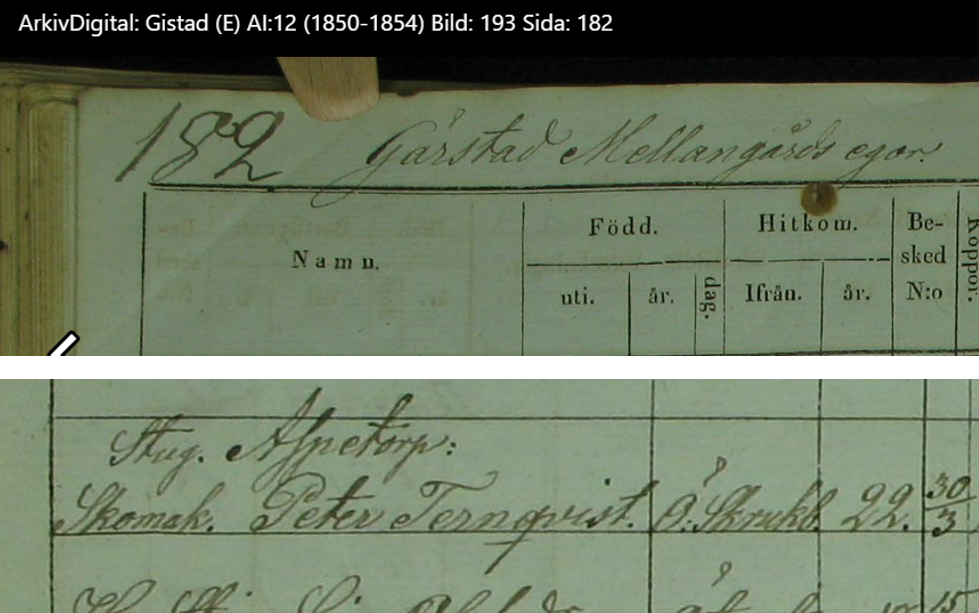 ArkivDigital: Gistad (E) AI:12 (1850-1854) Bild: 193 Sida: 182
182 Gärstad Mellangårds egor.
Namn.
Född.
Hitkom.
Be-
sked
N:o
Koppor.
uti.
år.
dag.
Ifrån.
år.
Stug. Aspetorp:
Skomak. Peter Ternqvist. Ö. Skrukb. 22. 30/3
15